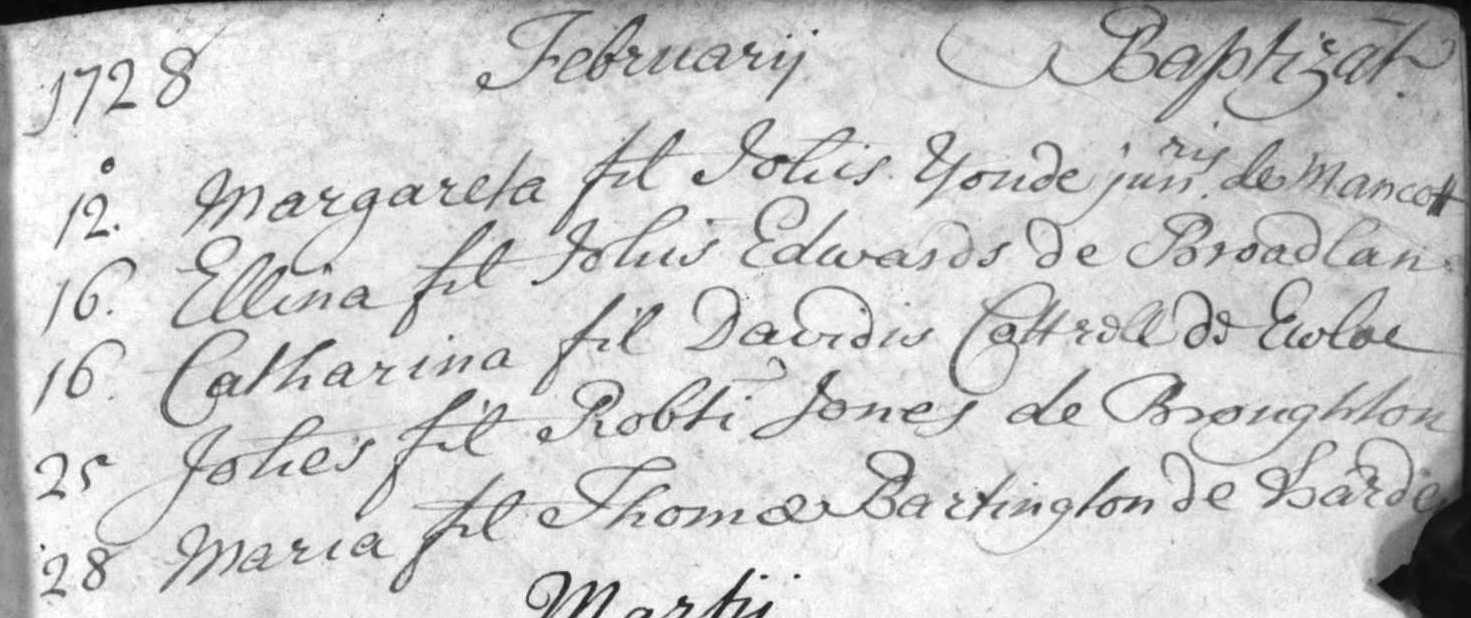 1728 Februarij Baptizat.
12. Margareta fil Johis Yonde junris de Mancott
16. Ellina fil Johis Edwards de Broadlan
16 Catharina fil Davidis Cottrell de Ewloe
25 Johes fil Robti Jones de Broughton
28 Maria fil Thomæ Bartington de Harde
Martij